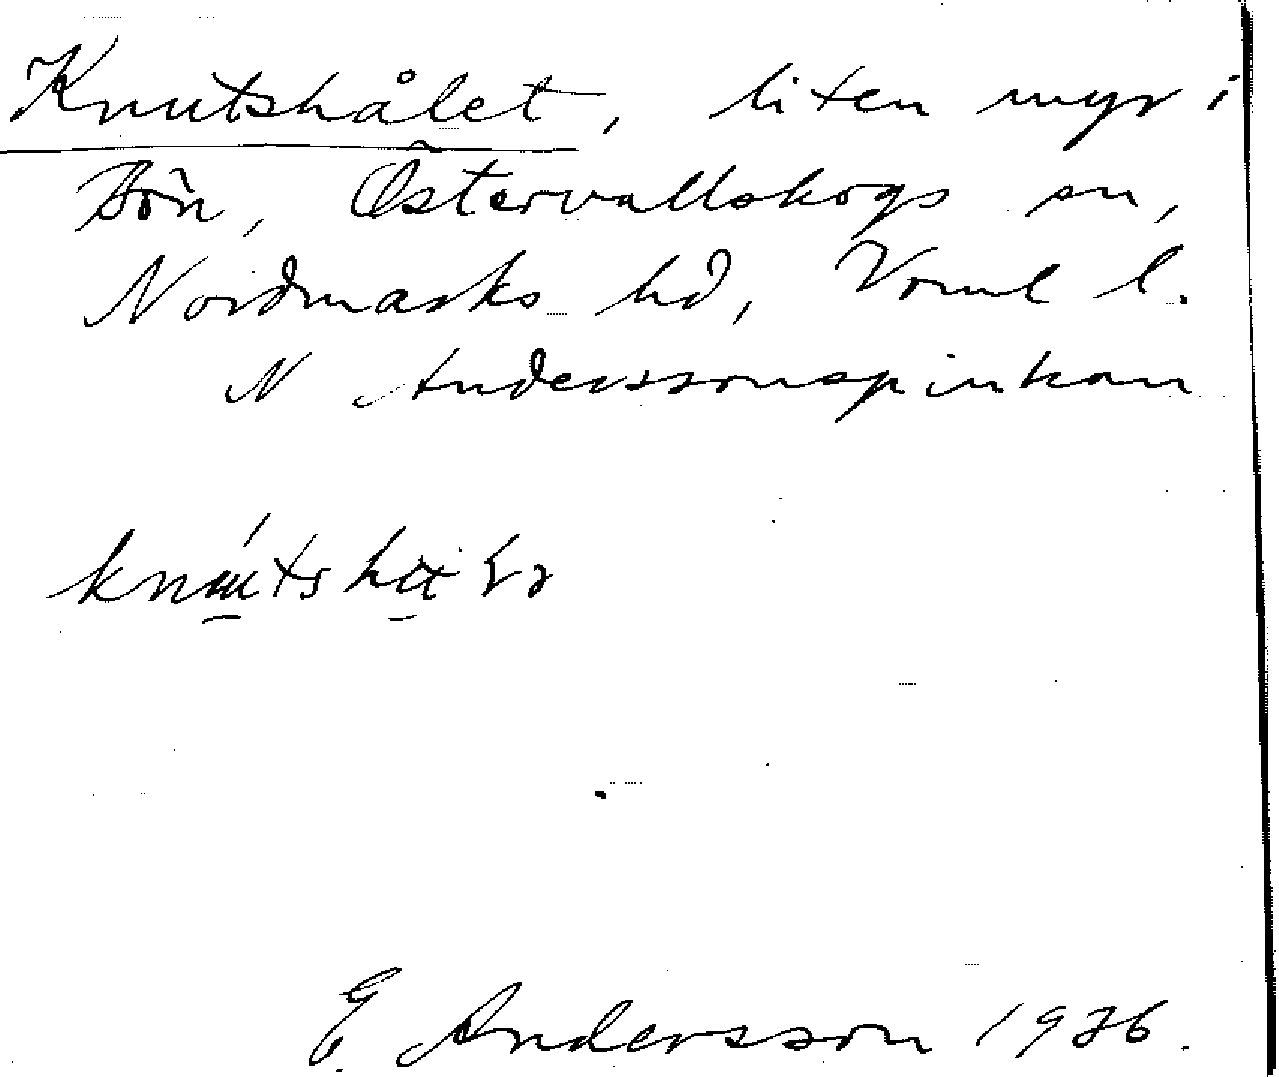 Knutshålet, liten myr i
Bön, Östervallskogs sn,
Nordmarks hd, Vrml l.
N Anderssonspinkan
E Andersson 1936.